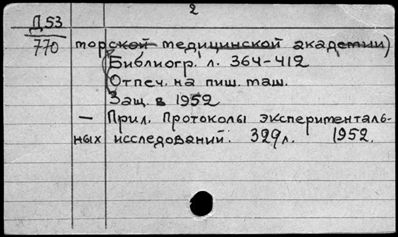 2
Д53
770
торской медицинской академии)
(Библиогр. л. 364-412
Отпеч. на пиш. маш.
Защ. в 1952
— Прил. Протоколы эксперименталь-
ных исследований. 329 л. 1952.